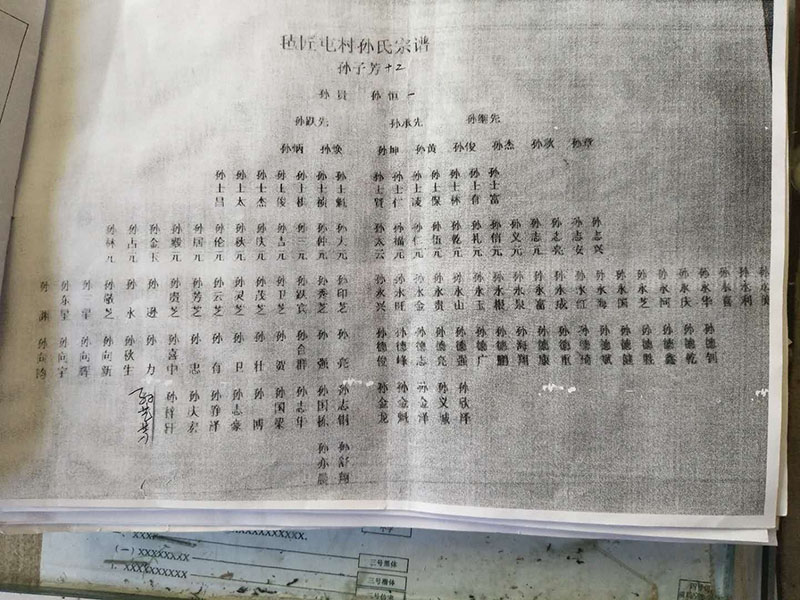 毡匠屯村孙氏宗谱
孙子芳十二
孙贵 孙恒一
孙跃先 孙承先 孙继先
孙炳 孙焕 孙坤 孙黄 孙俊 孙杰 孙秋 孙章
孙士昌 孙士太 孙士杰 孙士俊 孙士祺 孙士祯 孙士魁 孙士贤 孙士仁 孙士凌 孙士保 孙士林 孙士有 孙士富
孙林元 孙占元 孙金玉 孙殿元 孙居元 孙伦元 孙秋元 孙庆元 孙吉元 孙三元 孙仲元 孙大元 孙太云 孙福元 孙仁元 孙伍元 孙乾元 孙礼元 孙信元 孙义元 孙志元 孙志亮 孙志安 孙志兴
孙渊 孙东星 孙三星 孙敬芝 孙永 孙逊 孙贵芝 孙芳芝 孙云芝 孙灵芝 孙茂芝 孙卫芝 孙跃宾 孙秀芝 孙印芝 孙永兴 孙永旺 孙永金 孙永贵 孙永山 孙永玉 孙永根 孙永泉 孙永富 孙永成 孙永红 孙永海 孙永国 孙永芝 孙永河 孙永庆 孙永华 孙永喜 孙永利
孙向鸿 孙向宇 孙向辉 孙向新 孙秋生 孙力 孙喜中 孙忠 孙有 孙卫 孙壮 孙贺 孙台群 孙强 孙亮 孙德俊 孙德峰 孙德志 孙德亮 孙德强 孙德广 孙德鹏 孙海翔 孙德康 孙德重 孙德琦 孙德斌 孙德健 孙德胜 孙德鑫 孙德乾 孙德钊
孙梓轩 孙庆宏 孙铮泽 孙志豪 孙博 孙国梁 孙志华 孙国栋 孙志钢 孙金龙 孙金魁 孙金泽 孙义诚 孙欣泽
孙亦晨 孙舒翔
XXXXXXXXXXXX.
(一) XXXXXXXX
1. XXXXXXXXXX
二号黑体
三号楷体